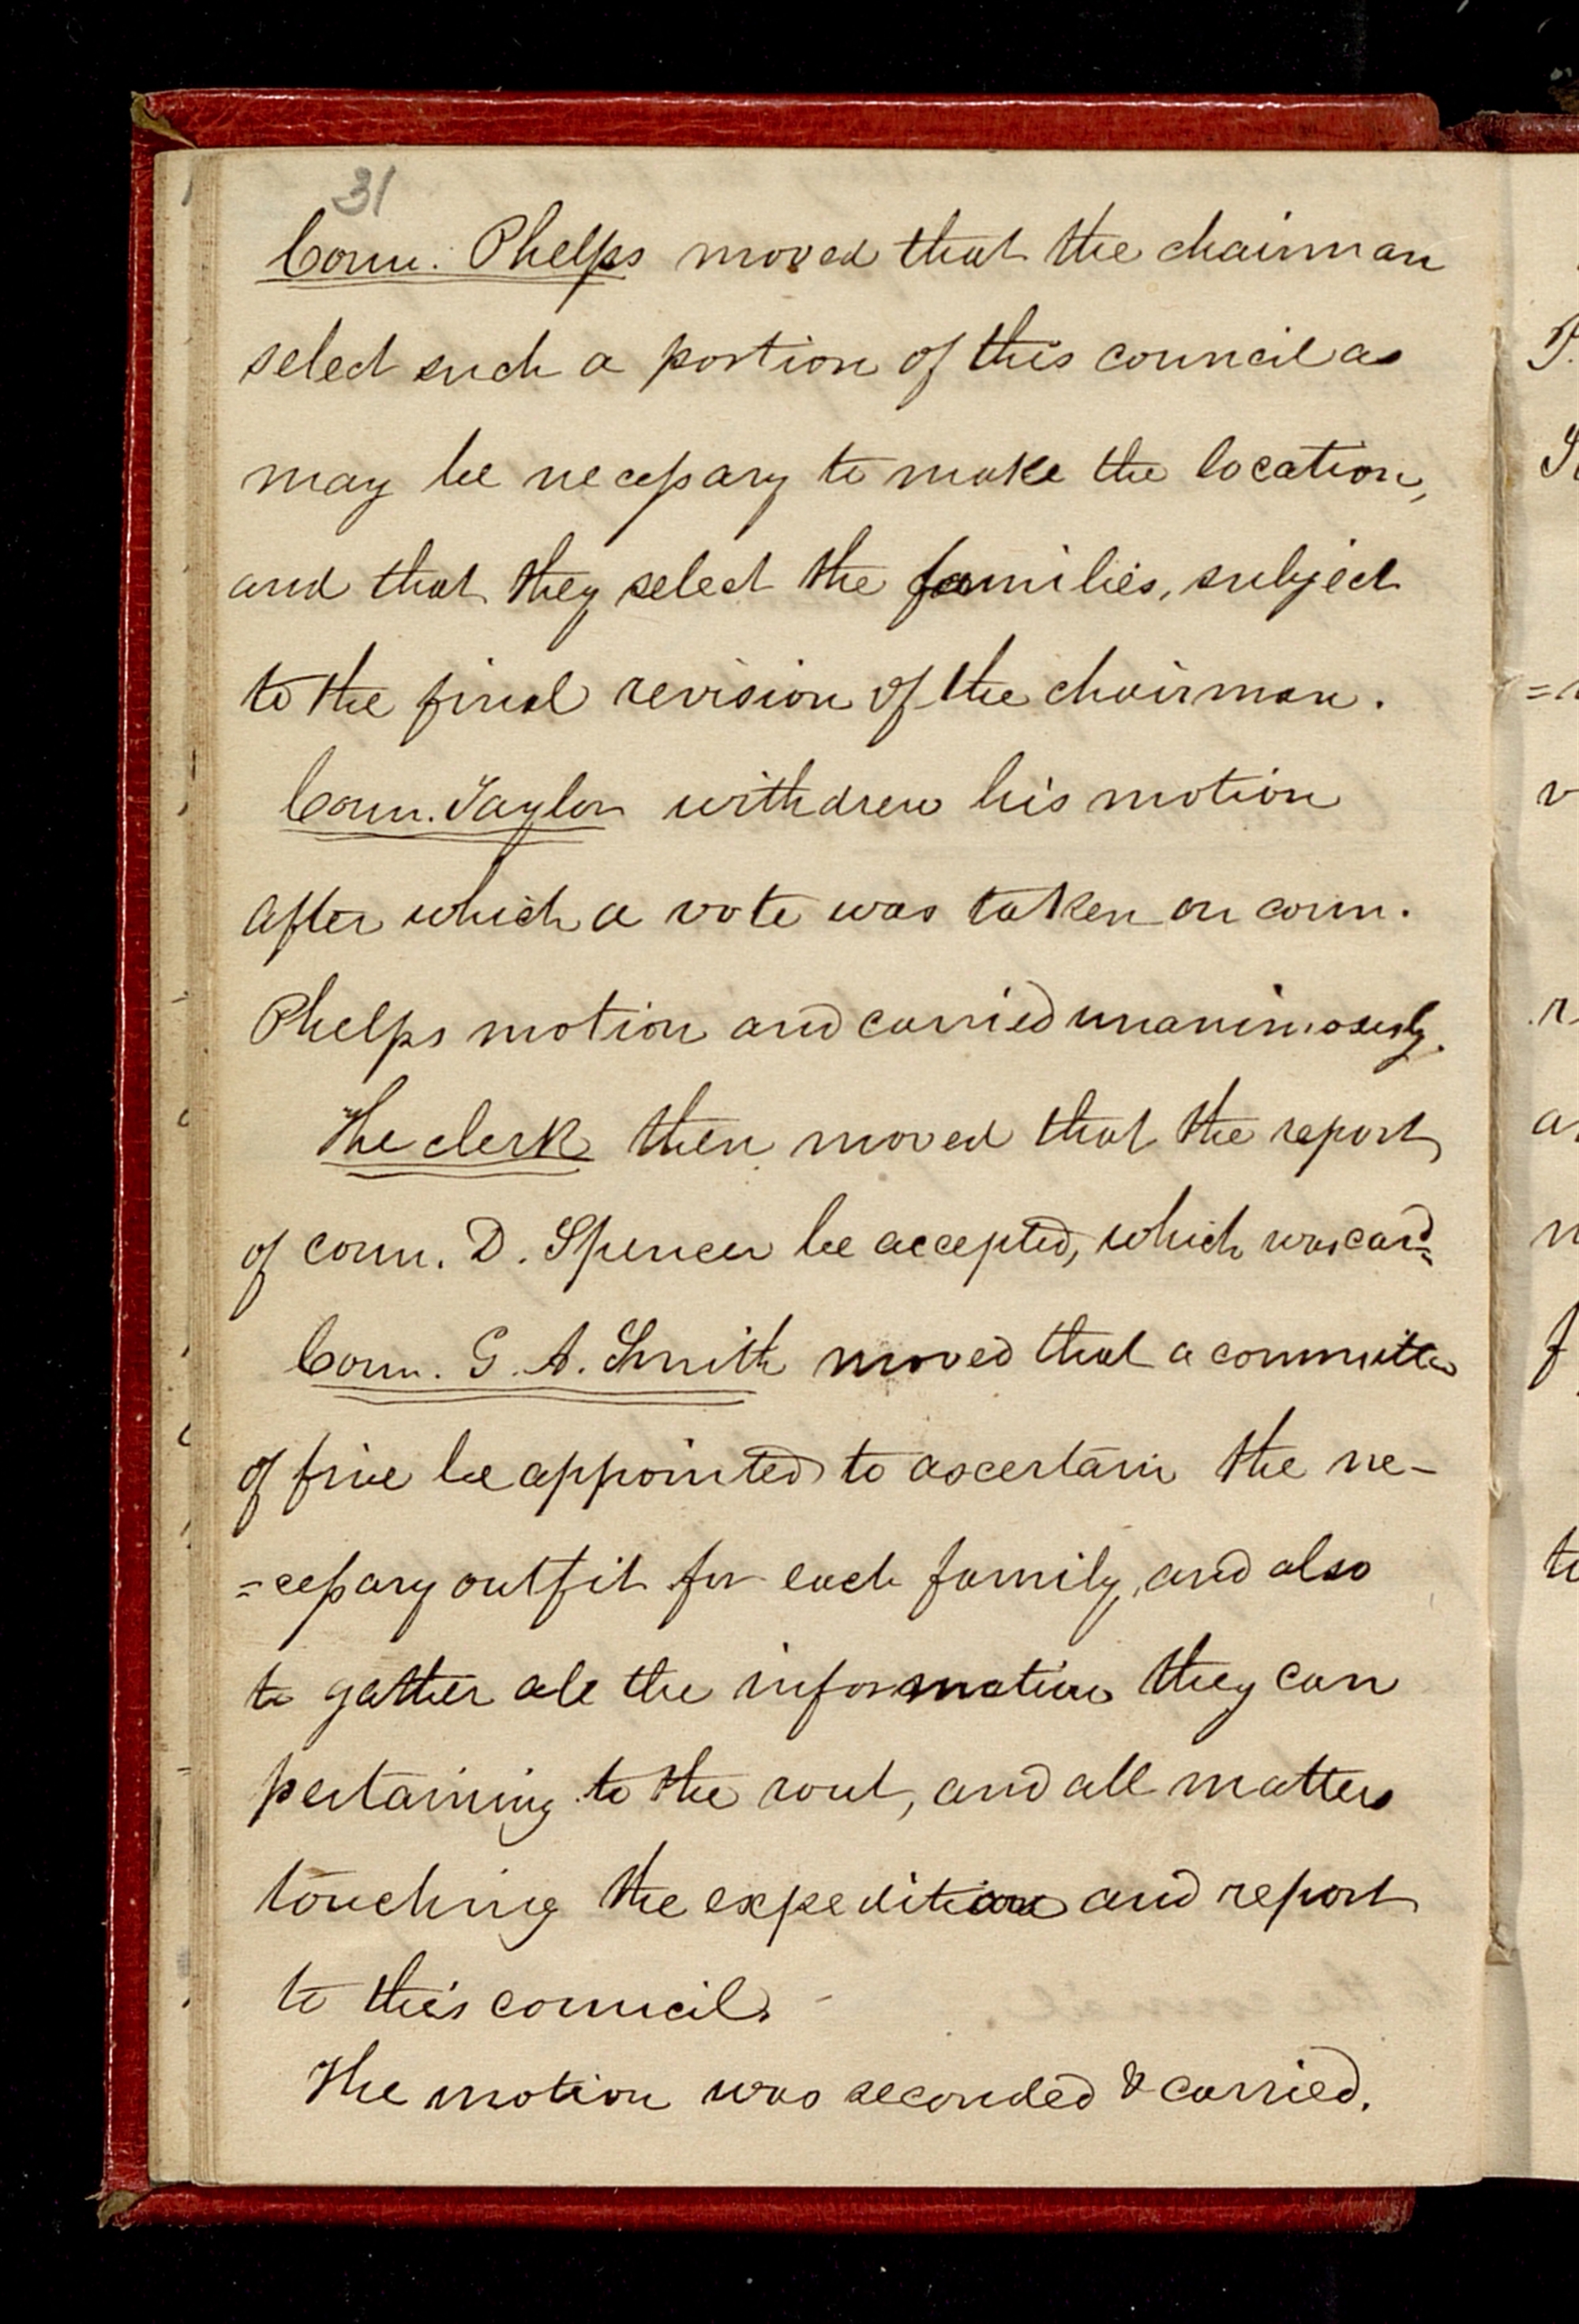 31
Coun. Phelps moved that the chairman
select such a portion of this council as
may be necessary to make the location,
and that they select the families, subject
to the final revision of the chairman.
Coun. Taylor withdrew his motion
after which a vote was taken on coun.
Phelps motion and carried unanimously.
The clerk then moved that the report
of coun. D. Spencer be accepted, which was card
Coun. G. A. Smith moved that a committee
of five be appointed to ascertain the ne-
=cessary outfit for each family, and also
to gather all the information they can
pertaining to the rout, and all matters
touching the expedition and report
to this council.
The motion was seconded & carried.